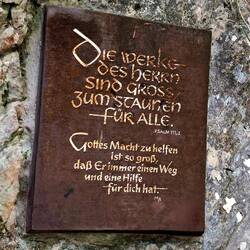 DIE WERKE
DES HERRN
SIND GROSS
ZUM STAUNEN
FÜR ALLE.
PSALM 111,2
Gottes Macht zu helfen
ist so groß,
daß Er immer einen Weg
und eine Hilfe
für dich hat.